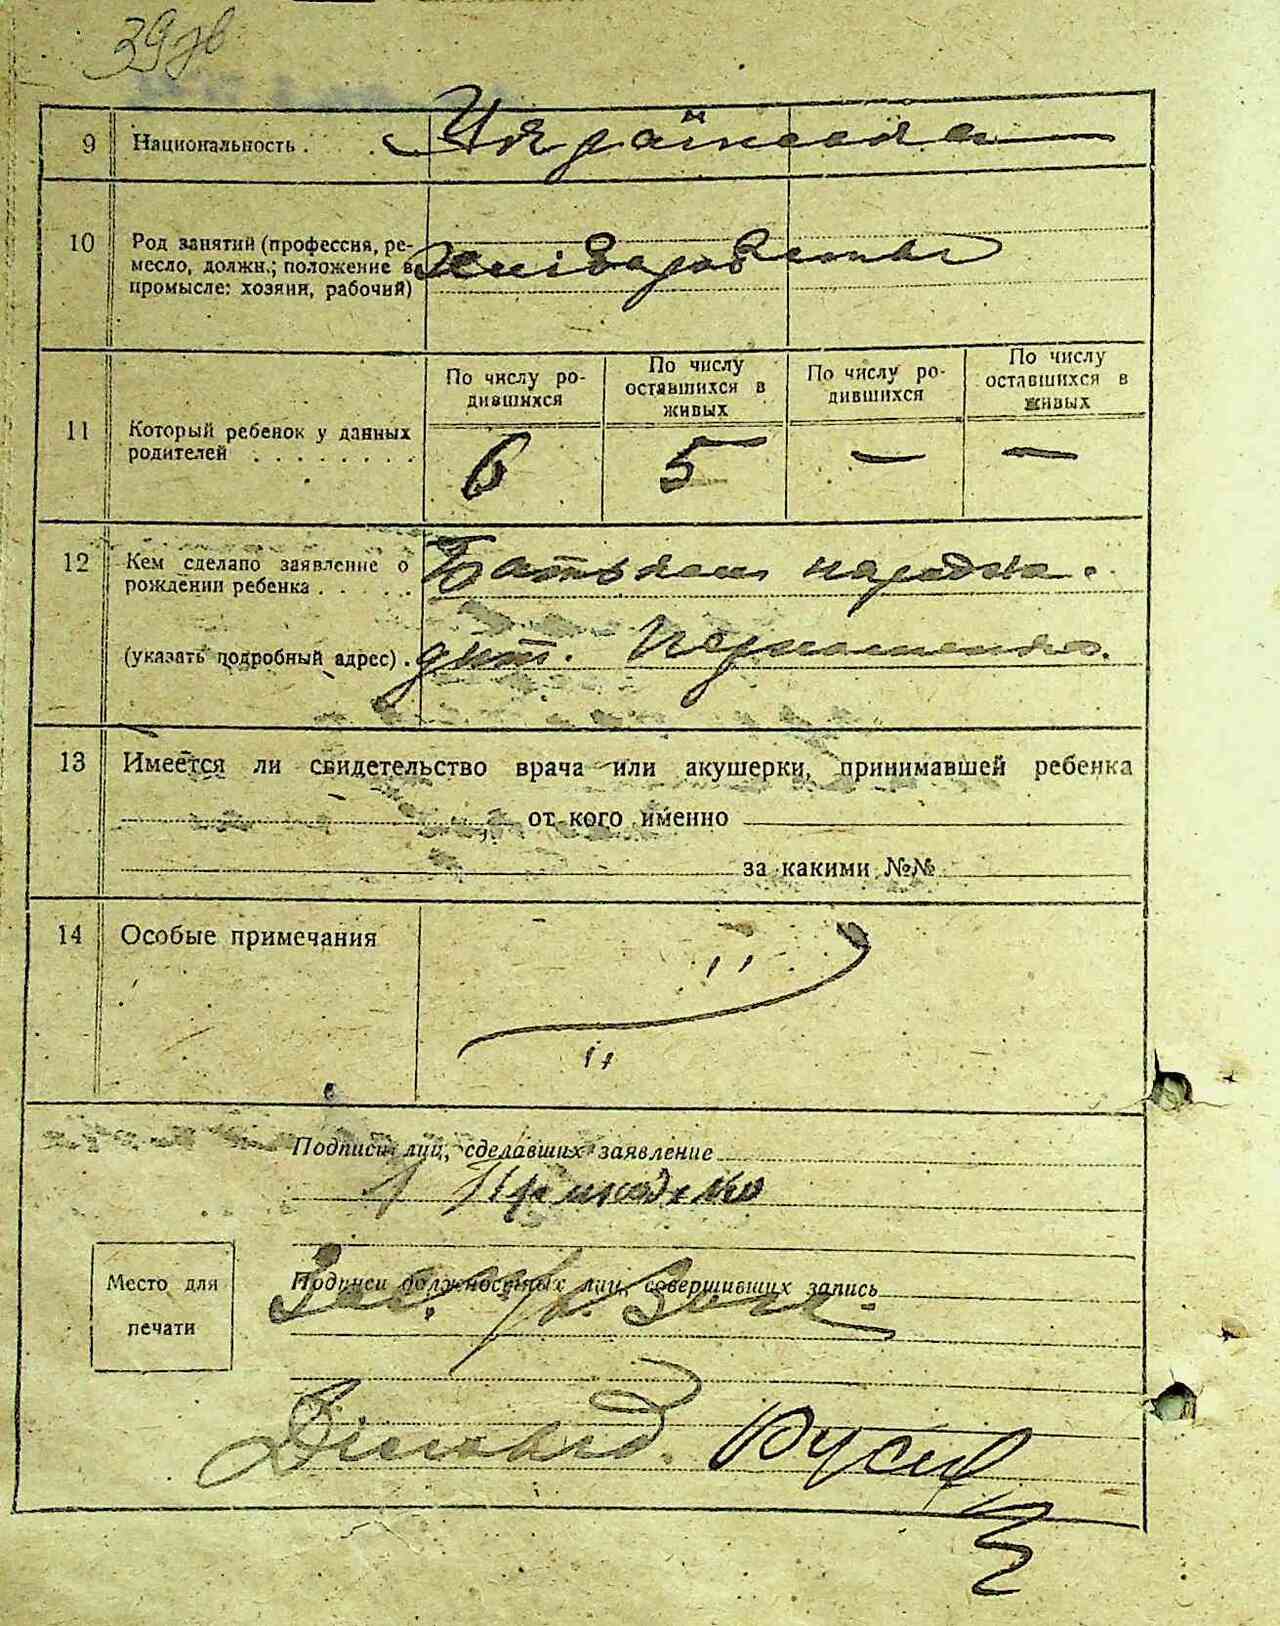 39 зв
9 Национальность . Українська
10 Род занятий (профессия, ре-
месло, должн.; положение в
промысле: хозяин, рабочий)
хліборобство
По числу ро-
дившихся
По числу
оставшихся в
живых
По числу ро-
дившихся
По числу
оставшихся в
живых
11 Который ребенок у данных
родителей . . . . . . . .
6 5 — —
12 Кем сделано заявление о
рождении ребенка . . . . .
Батьком народж.
(указать подробный адрес) .
дит.
13 Имеется ли свидетельство врача или акушерки, принимавшей ребенка
от кого именно
за какими №№
14 Особые примечания
Подписи лиц, сделавших заявление
Приходько
Место для
печати
Подписи должностных лиц, совершивших запись
Зав.